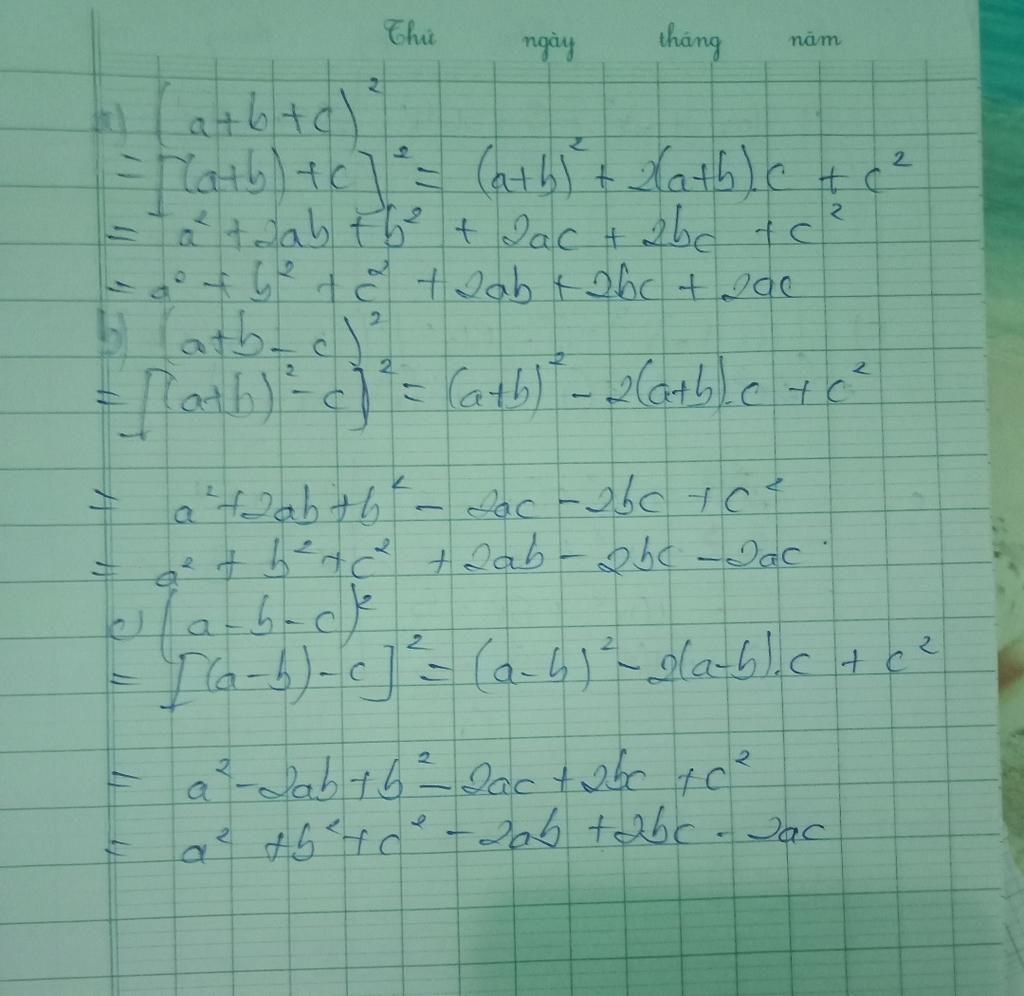 Thứ ngày tháng năm
a) (a+b+c)²
= [(a+b)+c]² = (a+b)² + 2(a+b).c + c²
= a² + 2ab + b² + 2ac + 2bc + c²
= a² + b² + c² + 2ab + 2bc + 2ac
b) (a+b-c)²
= [(a+b)²-c]² = (a+b)² - 2(a+b).c + c²
= a²+2ab+b² - 2ac - 2bc + c²
= a² + b² + c² + 2ab - 2bc - 2ac
c) (a-b-c)²
= [(a-b)-c]² = (a-b)² - 2(a-b).c + c²
= a² - 2ab + b² - 2ac + 2bc + c²
= a² + b² + c² - 2ab + 2bc - 2ac